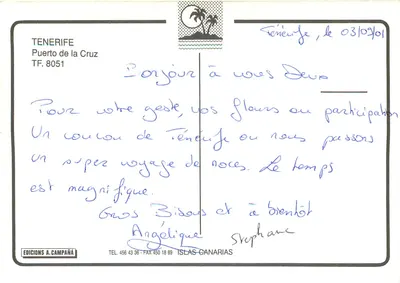 TENERIFE
Puerto de la Cruz
TF. 8051
Ténérife, le 03/07/01
Bonjour à vous Deux
Pour votre geste, vos fleurs ou participation
Un coucou de Ténérife ou nous passons
un super voyage de noces. Le temps
est magnifique.
Gros Bisous et à bientôt
Angélique Stephane
EDICIONS A. CAMPAÑÁ
TEL. 456 43 96 - FAX 450 18 89 ISLAS CANARIAS